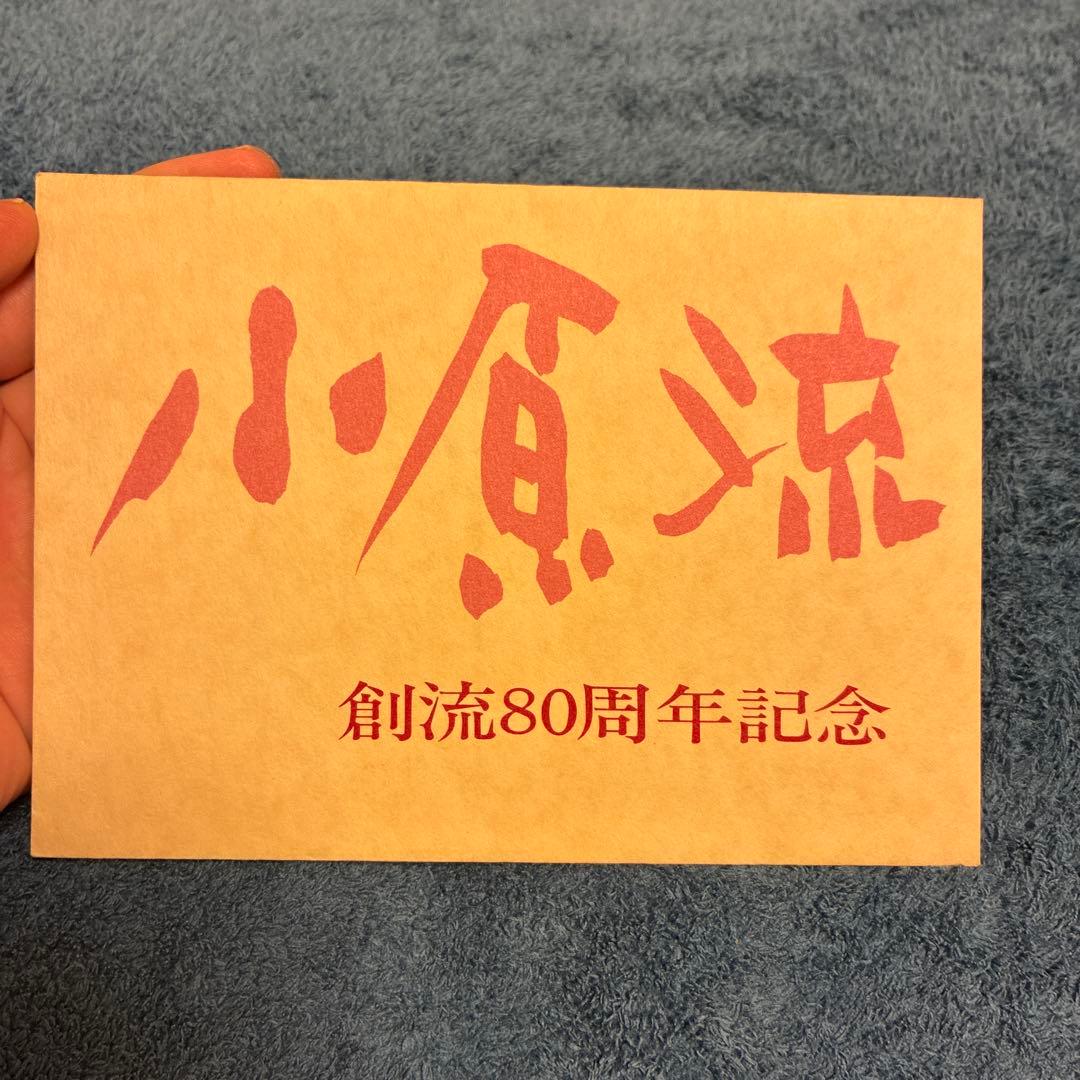 小原流
創流80周年記念